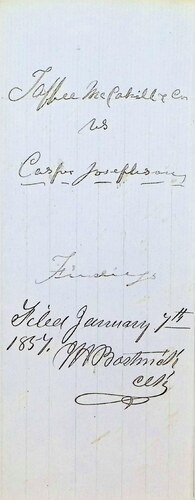 Taffee McCahill & Co
vs
Casper Josephson
Findings
Filed January 7th
1857.
W Bostwick
Clk